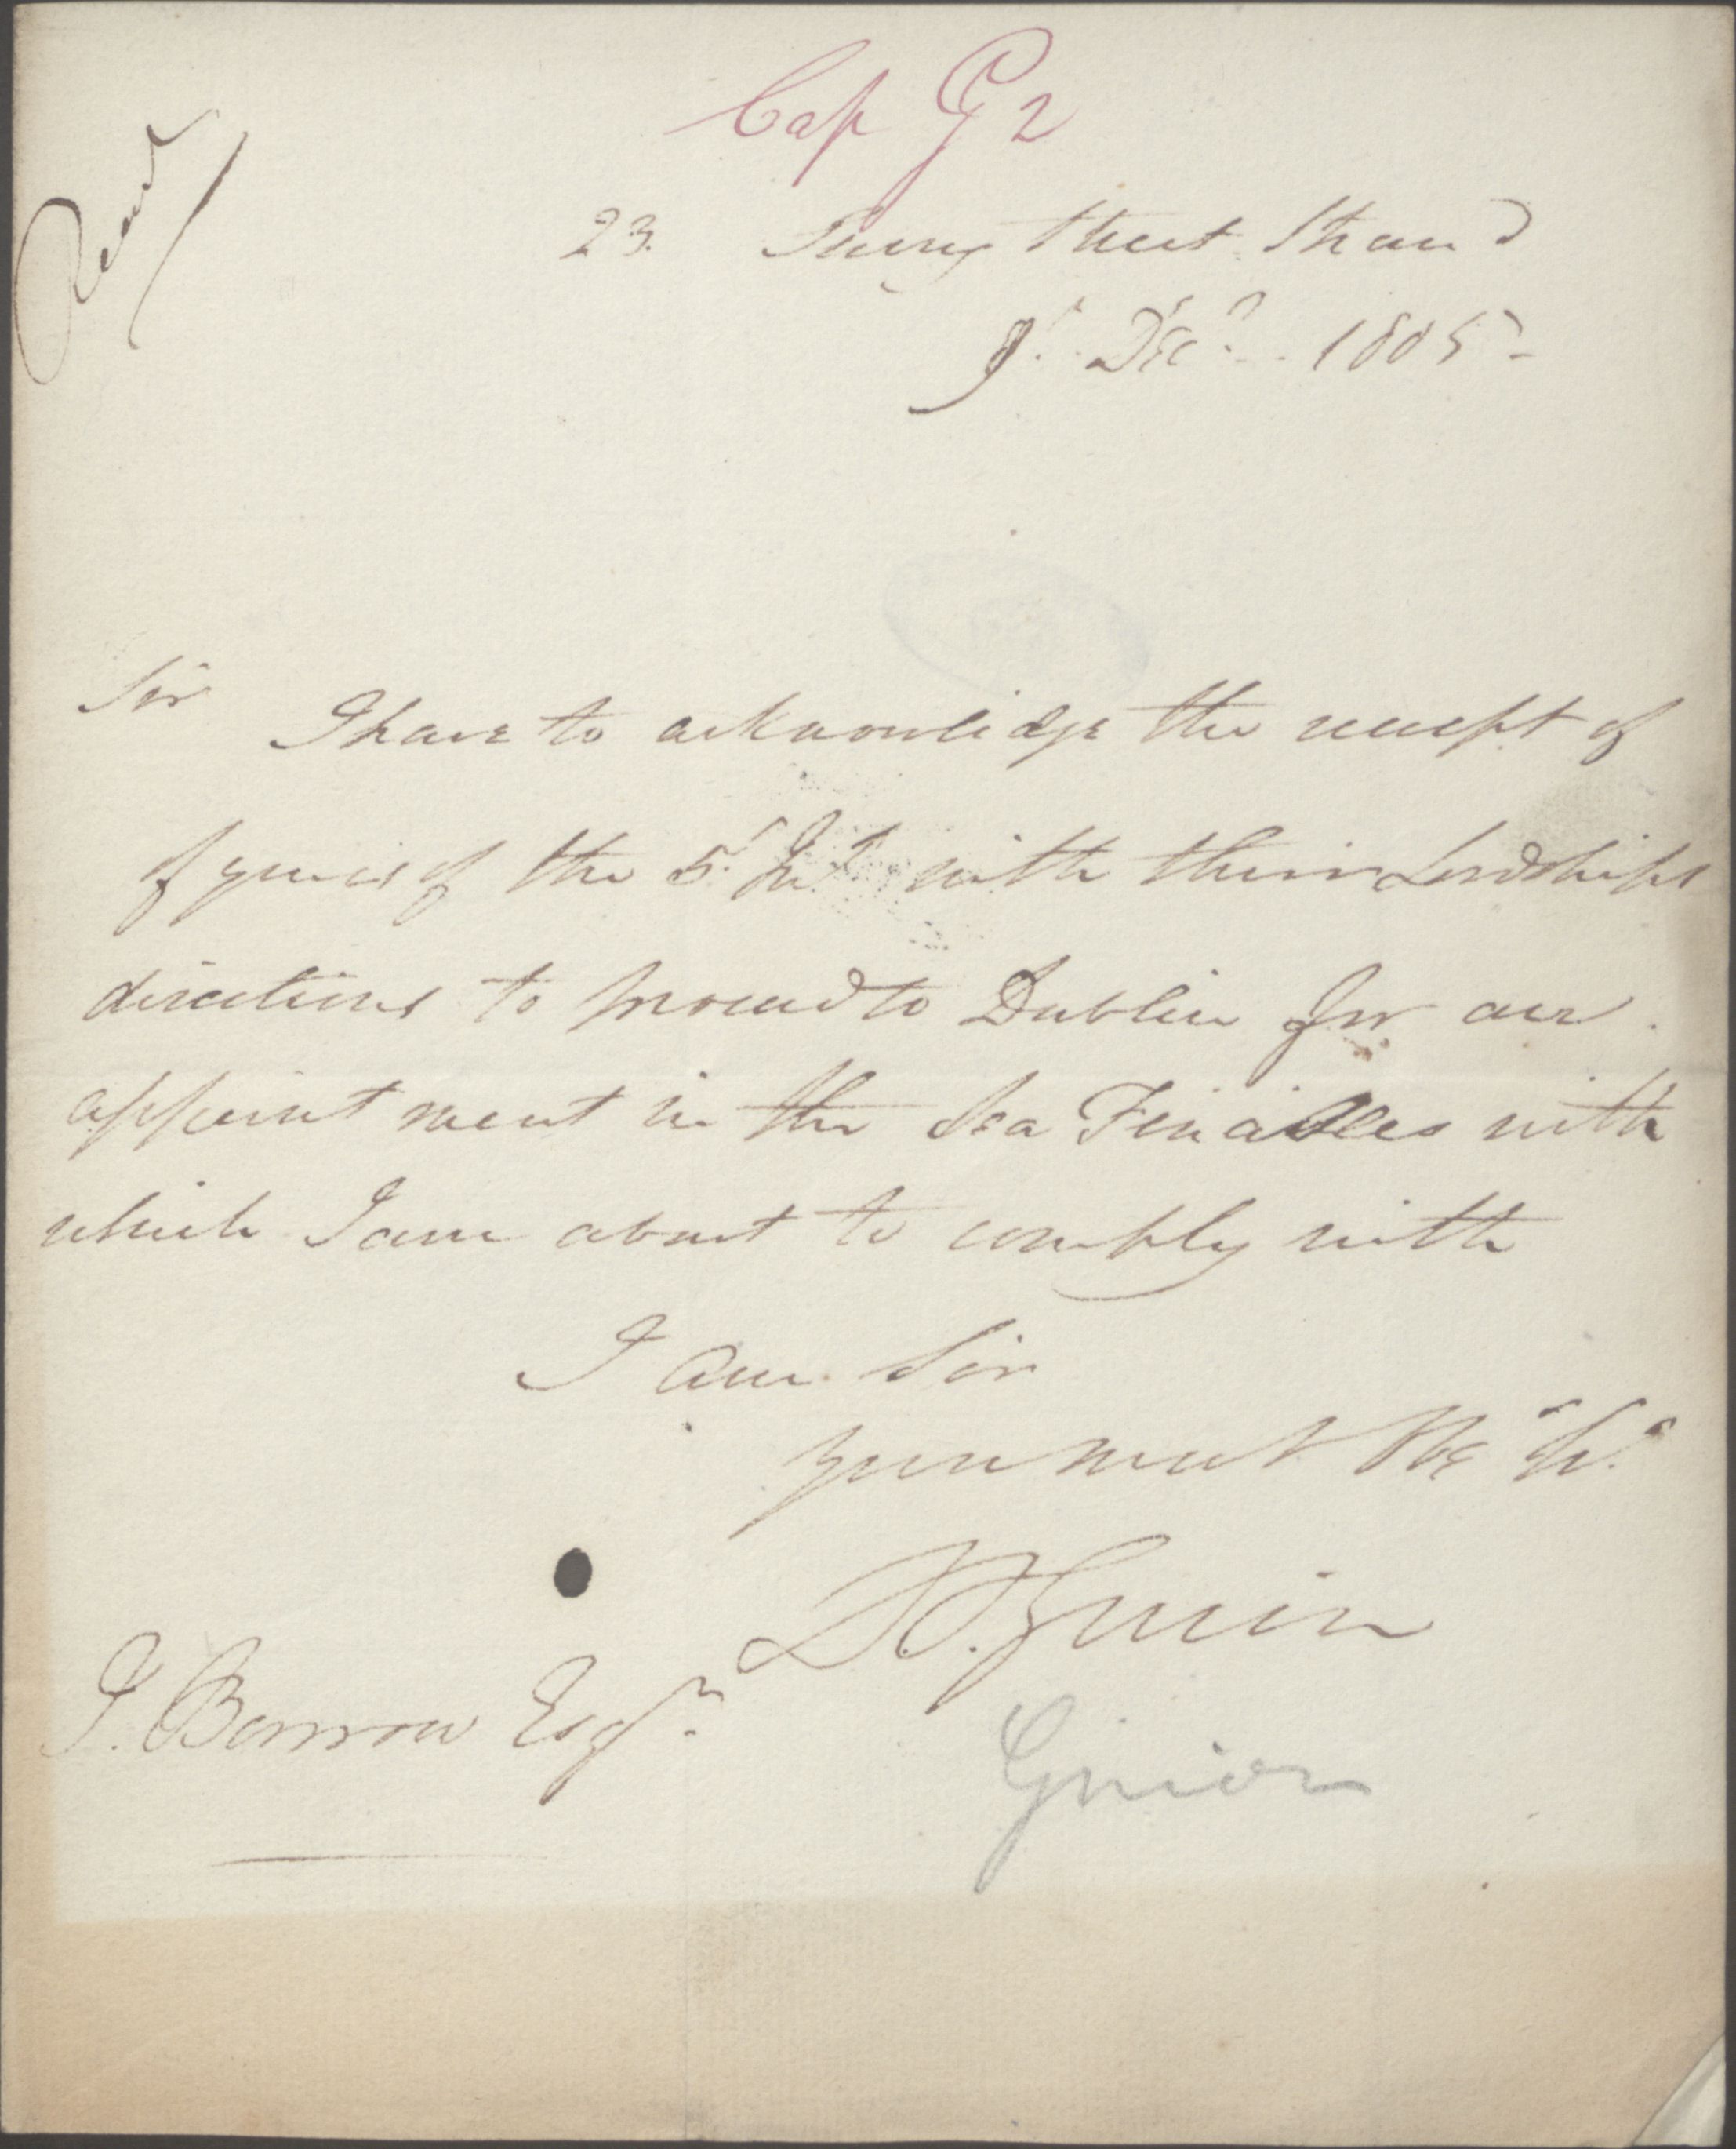 Cap G 2
Read
23. Surry Street Strand
9th Decr. 1805
Sir
I have to acknowledge the receipt of
of yours of the 5th Inst with their Lordships
directions to proceed to Dublin for an
appointment in the Sea Fencibles with
which I am about to comply with
I am Sir
your most
Guion
J. Barrow Esqr.
Guion